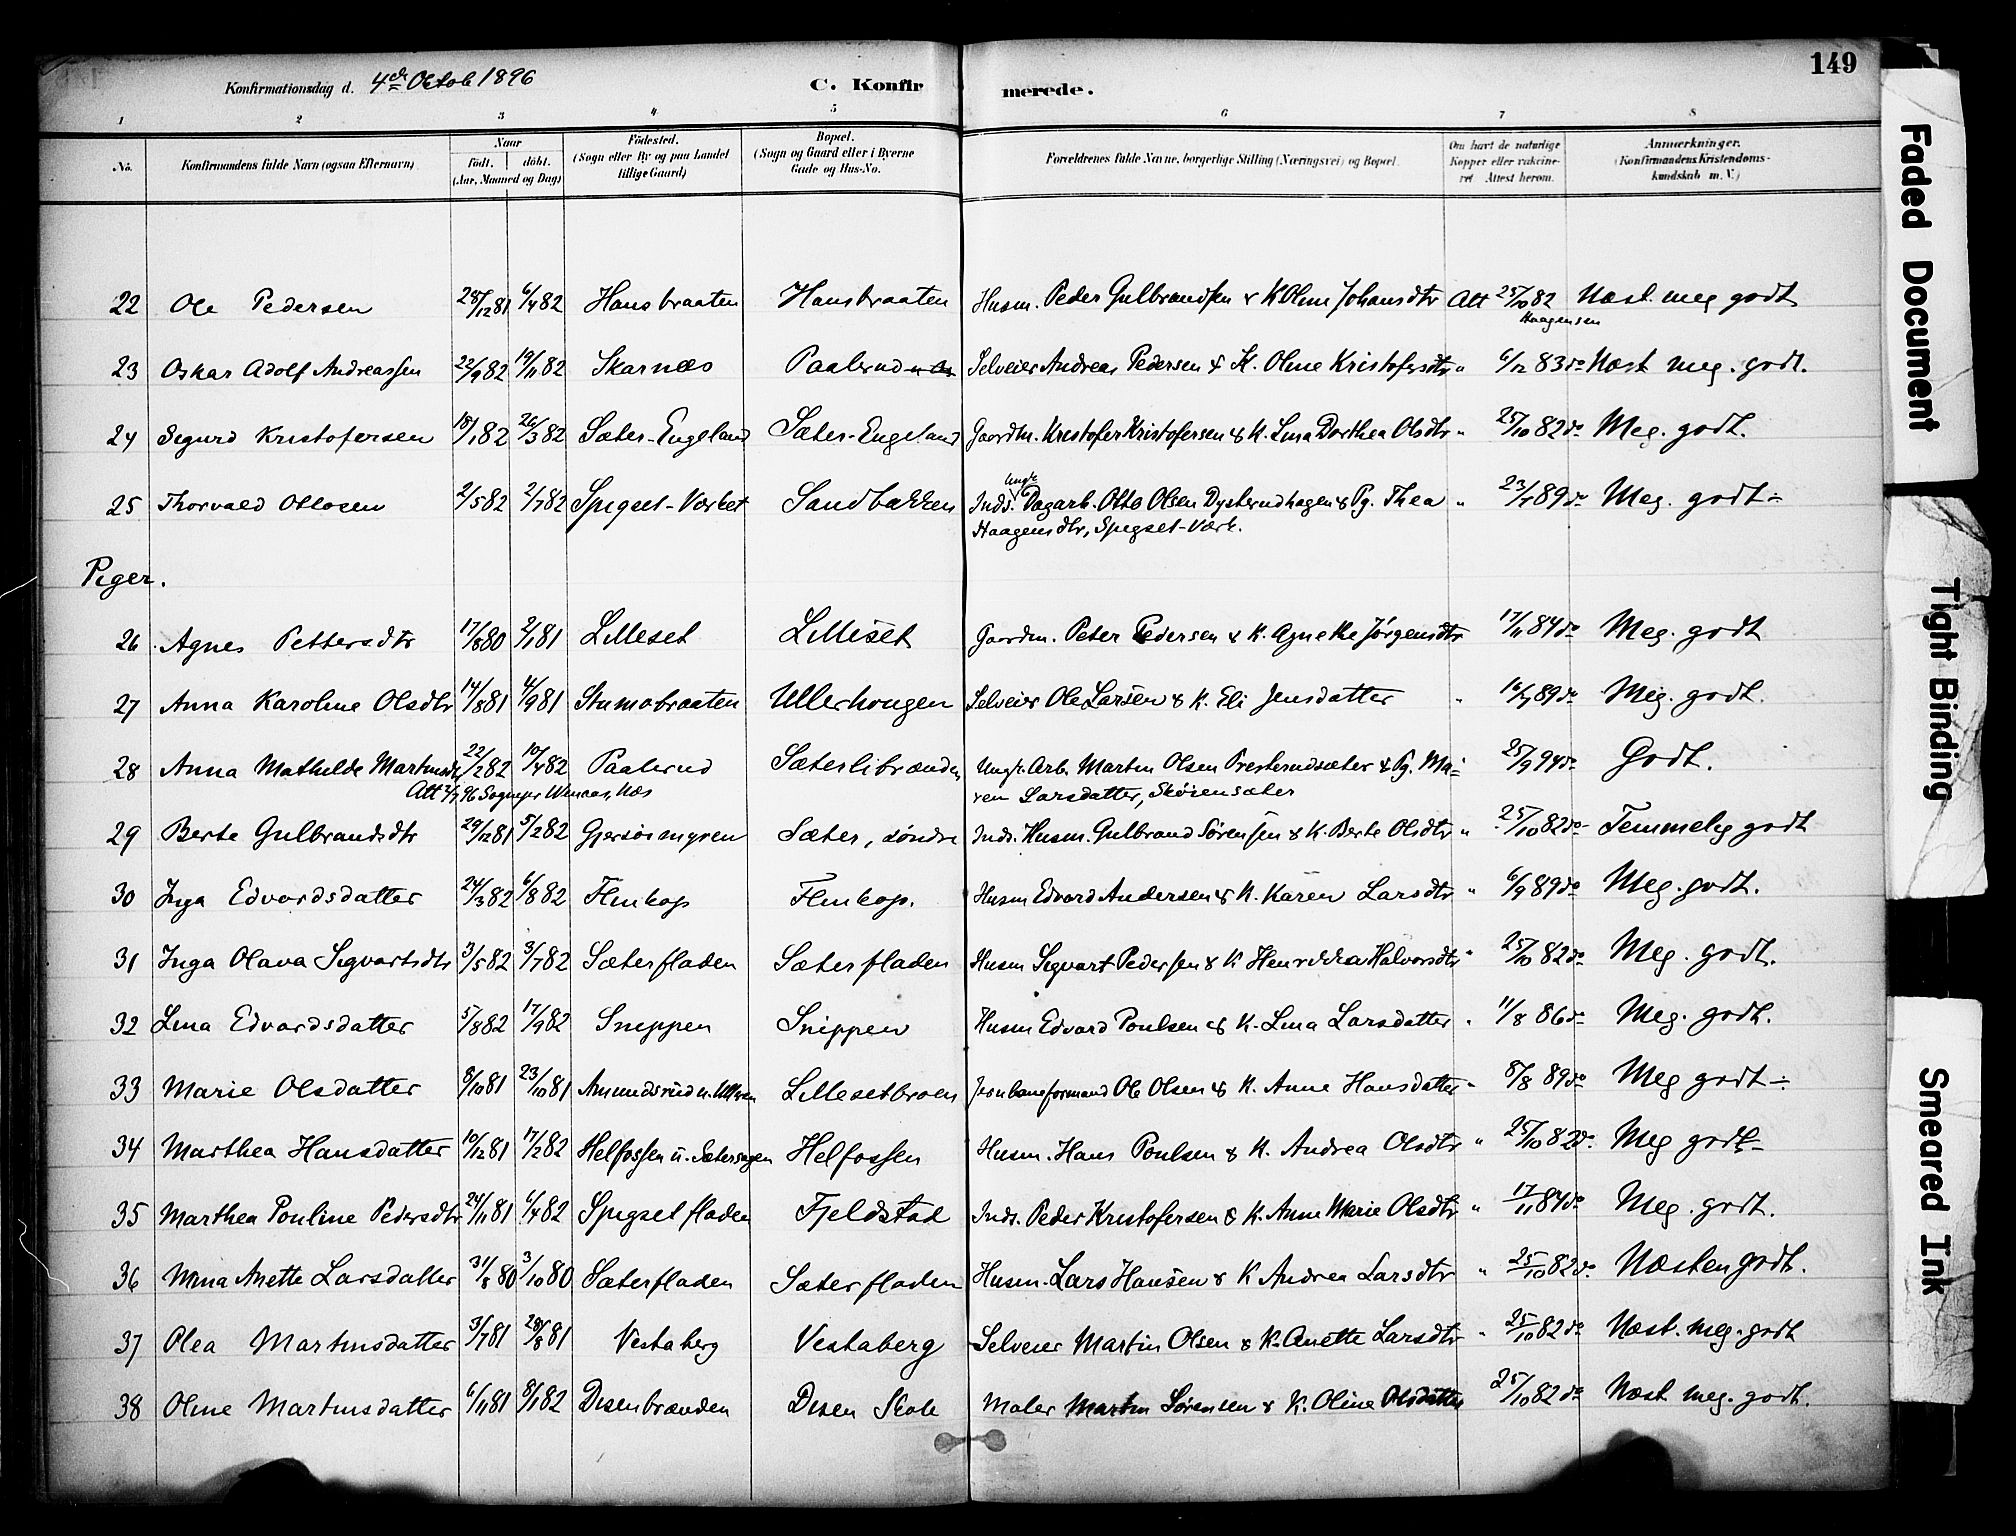 149
Konfirmationsdag d. 4de Octob 1896 C. Konfirmerede.
1 2 3 4 5 6 7 8
No. Konfirmandens fulde Navn (ogsaa Efternavn) Naar født. døbt. (Aar, Maaned og Dag) Fødested. (Sogn eller By og paa Landet tillige Gaard) Bopæl. (Sogn og Gaard eller i Byerne Gade og Hus-No. Forældrenes fulde Navne, borgerlige Stilling (Næringsvei) og Bopæl. Om havt de naturlige Kopper eller vaccineret Attest herom. Anmærkninger. (Konfirmandens Kristendomskundskab m. V.)
22 Ole Pedersen 28/12 81 6/4 82 Hansbraaten Hansbraaten Husm. Peder Gulbrandsen & K Oline Johansdtr Att 25/10 82 Næst meg godt
Haagensen
23 Oskar Adolf Andreassen 22/9 82 19/11 82 Skarnæs Paalerud Selveier Andreas Pedersen & K. Oline Kristofersdtr " 6/12 83 do Næst meg. godt.
24 Sigurd Kristofersen 18/1 82 26/3 82 Sæter-Engeland Sæter-Engeland Gaardm. Kristofer Kristofersen & K. Lina Dorthea Olsdtr " 25/10 82 do Meg. godt.
25 Thorvald Ottosen 2/5 82 2/7 82 Spigset-Verket Sandbakken Inds. Ungk. Dagarb. Otto Olsen Dysterudhagen & Pg. Thea " 89 do Meg. godt
Haagensdtr, Spigset-Værk.
Piger.
26 Agnes Pettersdtr 17/8 80 2/1 81 Lilleset Lilleset Gaardm. Peter Pedersen & K. Agnethe Jørgensdtr 17/11 84 do Meg. godt
27 Anna Karoline Olsdtr 14/8 81 4/9 81 Stumobraaten Ullerhougen Selveier Ole Larsen & K. Eli Jensdatter " 89 do Meg. godt.
28 Anna Mathilde Martinsdtr 22/2 82 10/4 82 Paalerud Sæterlibrænden Ungk. Arb. Martin Olsen Presterudsæter & Pg. Ma-
Att 96 Sognepr Nes ren Larsdatter, Skøiensæter 25/9 94 do Godt.
29 Berte Gulbrandsdtr 29/12 81 5/2 82 Gjersøimyren Sæter, søndre Inds. Husm. Gulbrand Sørensen & K. Berte Olsdtr " 25/10 82 do Temmelig godt
30 Inga Edvardsdatter 24/3 82 6/8 82 Flinkop Flinkop. Husm Edvard Andersen & K. Karen Larsdtr " 6/9 89 do Meg. godt.
31 Inga Olava Sigvartsdtr 3/5 82 3/7 82 Sæterfladen Sæterfladen Husm Sigvart Pedersen & K Henrikka Halvorsdtr " 25/10 82 do Meg. godt.
32 Lina Edvardsdatter 5/8 82 17/9 82 Snippen Snippen Husm Edvard Poulsen & K. Lina Larsdatter " 11/8 86 do Meg. godt.
33 Marie Olsdatter 8/10 81 23/10 81 Amundsrud Lillesetbroen Jernbaneformand Ole Olsen & K. Anne Hansdatter " 8/8 89 do Meg godt
34 Marthea Hansdatter 10/12 81 17/2 82 Helfossen Helfossen Husm. Hans Poulsen & K. Andrea Olsdtr " 25/10 82 do. Meg godt
35 Marthea Pouline Pedersdtr 24/11 81 6/4 82 Spigsetfladen Fjeldstad Inds. Peder Kristofersen & K. Anne Marie Olsdtr " 17/11 84 do Meg. godt.
36 Mina Anette Larsdatter 31/8 80 3/10 80 Sæterfladen Sæterfladen Husm. Lars Hansen & K Andrea Larsdtr " 25/10 82 do. Næsten godt.
37 Olea Martinsdatter 3/7 81 28/8 81 Vestaberg Vestaberg Selveier Martin Olsen & K. Anette Larsdtr " 25/10 82 do Næst. meg. godt
38 Oline Martinsdatter 6/11 81 8/1 82 Disenbrænden Disen Skole Maler Martin Sørensen & K. Oline Olsdatter 25/10 82 do Næst meg. godt.
Faded Document
Tight Binding
Smeared Ink